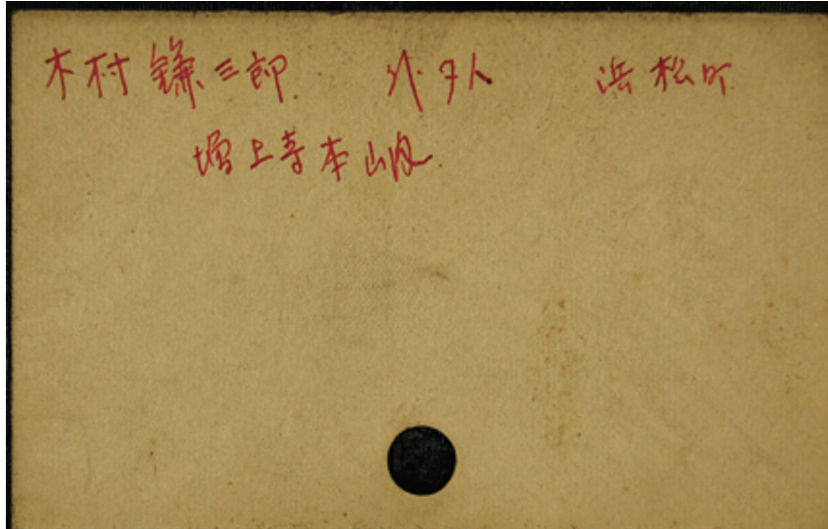 木村鎌三郎 外夕人 浜松町
増上寺本山後